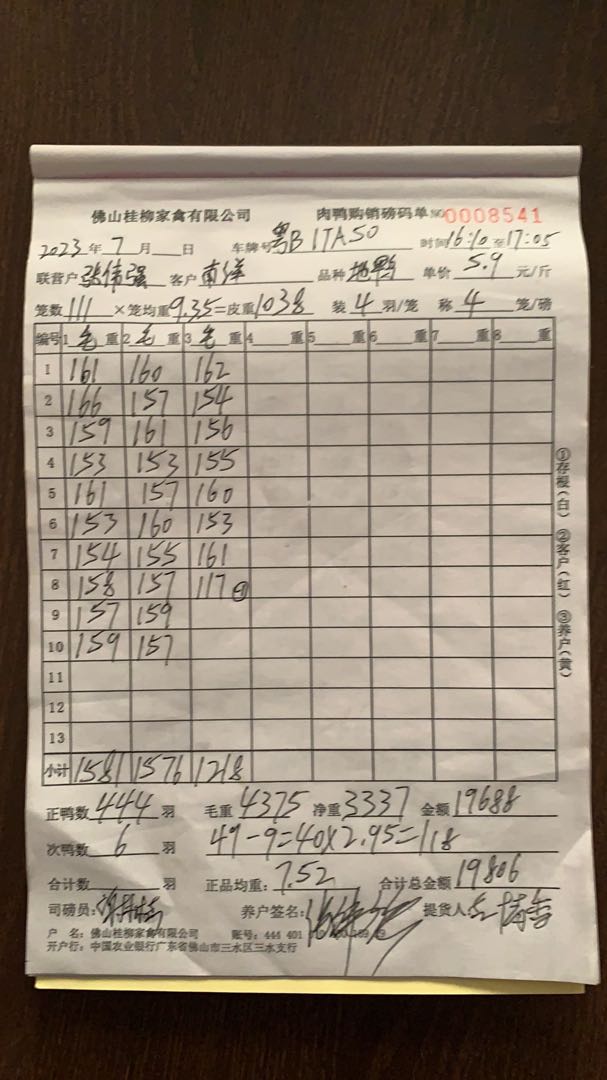 佛山桂柳家禽有限公司 肉鸭购销磅码单 NO 0008541
2023 年 7 月 日 车牌号 粤B1TA50 时间 16:10 至 17:05
联营户 张伟强 客户 南洋 品种 地鸭 单价 5.9 元/斤
笼数 111 ×笼均重 9.35 =皮重 1038 装 4 羽/笼 称 4 笼/磅
编号 1 毛 重 2 毛 重 3 毛 重 4 重 5 重 6 重 7 重 8 重
1 161 160 162
2 166 157 154
3 159 161 156
4 153 153 155
5 161 157 160
6 153 160 153
7 154 155 161
8 158 157 117
9 157 159
10 159 157
11
12
13
小计 1581 1576 1218
①存根(白) ②客户(红) ③养户(黄)
正鸭数 444 羽 毛重 4375 净重 3337 金额 19688
次鸭数 6 羽 49-9=40×2.95=118
合计数 羽 正品均重: 7.52 合计总金额 19806
司磅员: 养户签名: 提货人:
户 名: 佛山桂柳家禽有限公司 账号: 444 401
开户行: 中国农业银行广东省佛山市三水区三水支行